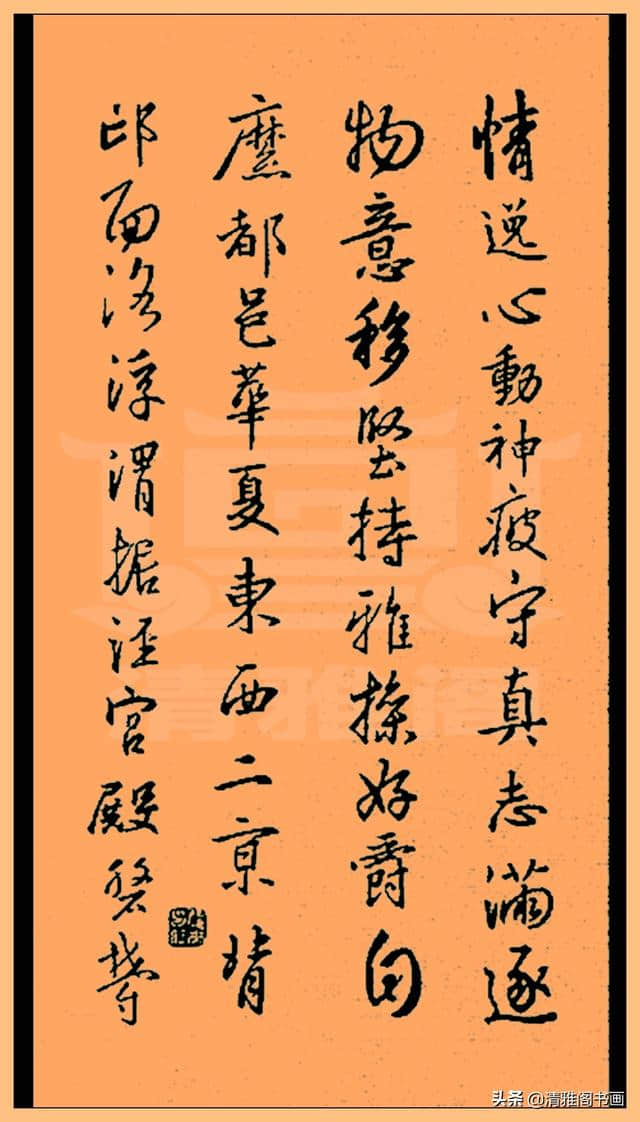 情逸心動神疲守真志滿逐
物意移堅持雅操好爵自
縻都邑華夏東西二京背
邙面洛浮渭據涇宮殿磐鬱
清雅阁
头条 @清雅阁书画